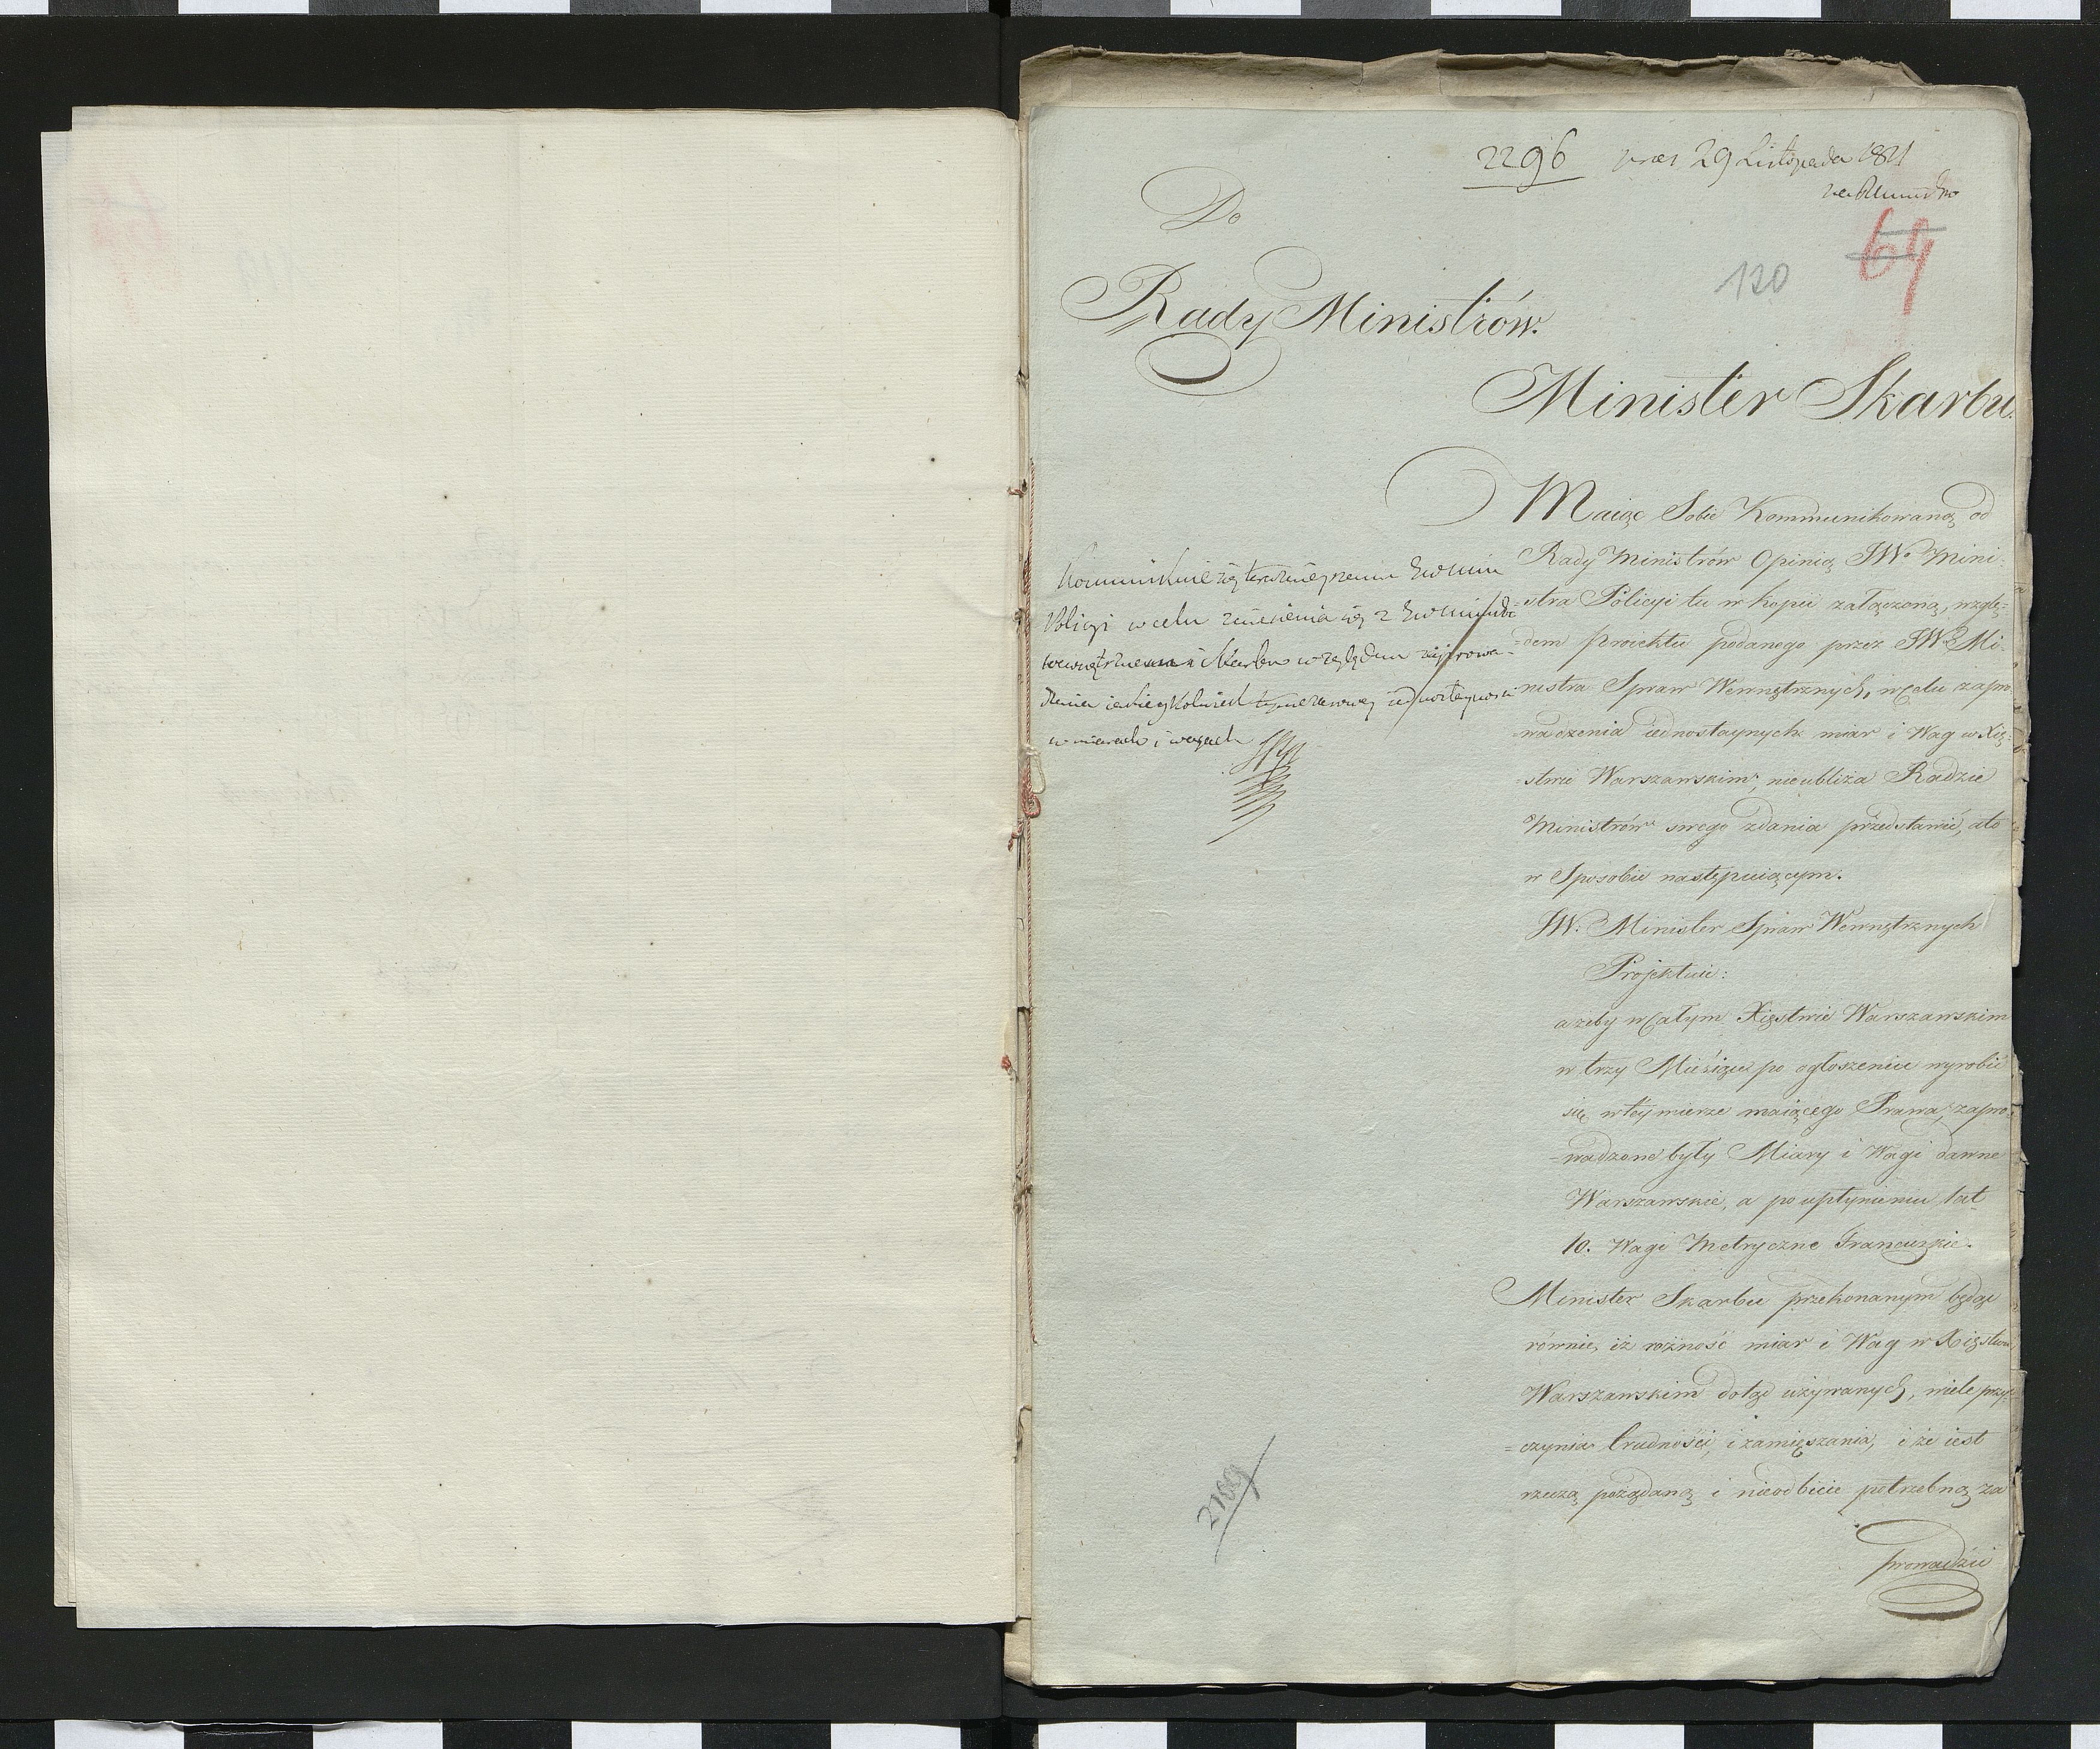 2296 29 Listopada 1811
Do
69
120
Rady Ministrów.
Minister Skarbu.
Maiąc Sobie Kommunikowaną od
Rady Ministrów Opinią JW. Mini:
=stra Policyi tu w kopii załączoną, wzglę=
=dem proiektu podanego przez JW. Mi=
nistra Spraw Wewnętrznych, w celu zapro
=wadzenia iednostaynych miar i Wag w Xię=
=stwie Warszawskim, nieubliża Radzie
Ministrów swego zdania przedstawić, a to
w Sposobie następuiącym.
JW. Minister Spraw Wewnętrznych
Projektuie:
ażeby w całym Xięstwie Warszawskim
w trzy Miesiące po ogłoszeniu wyrobić
się w tey mierze maiącego Prawa, zapro=
=wadzone były Miary i Wagi dawne
Warszawskie, a po upłynieniu lat
10. Wagi Metryczne Francuzkie.
Minister Skarbu przekonanym będąc
równie, iż rożność miar i Wag w Xięstwie
Warszawskim dotąd używanych, wiele przy=
=czynia trudności, i zamięszania, i że iest
rzeczą pożądaną i nieodbicie potrzebną za
prowadzić
Kommunikuie się
Policyi w celu zniesienia się z
i Skarbu względem zaprowa=
dzenia iakieykolwiek iednostayności
w miarach i wagach